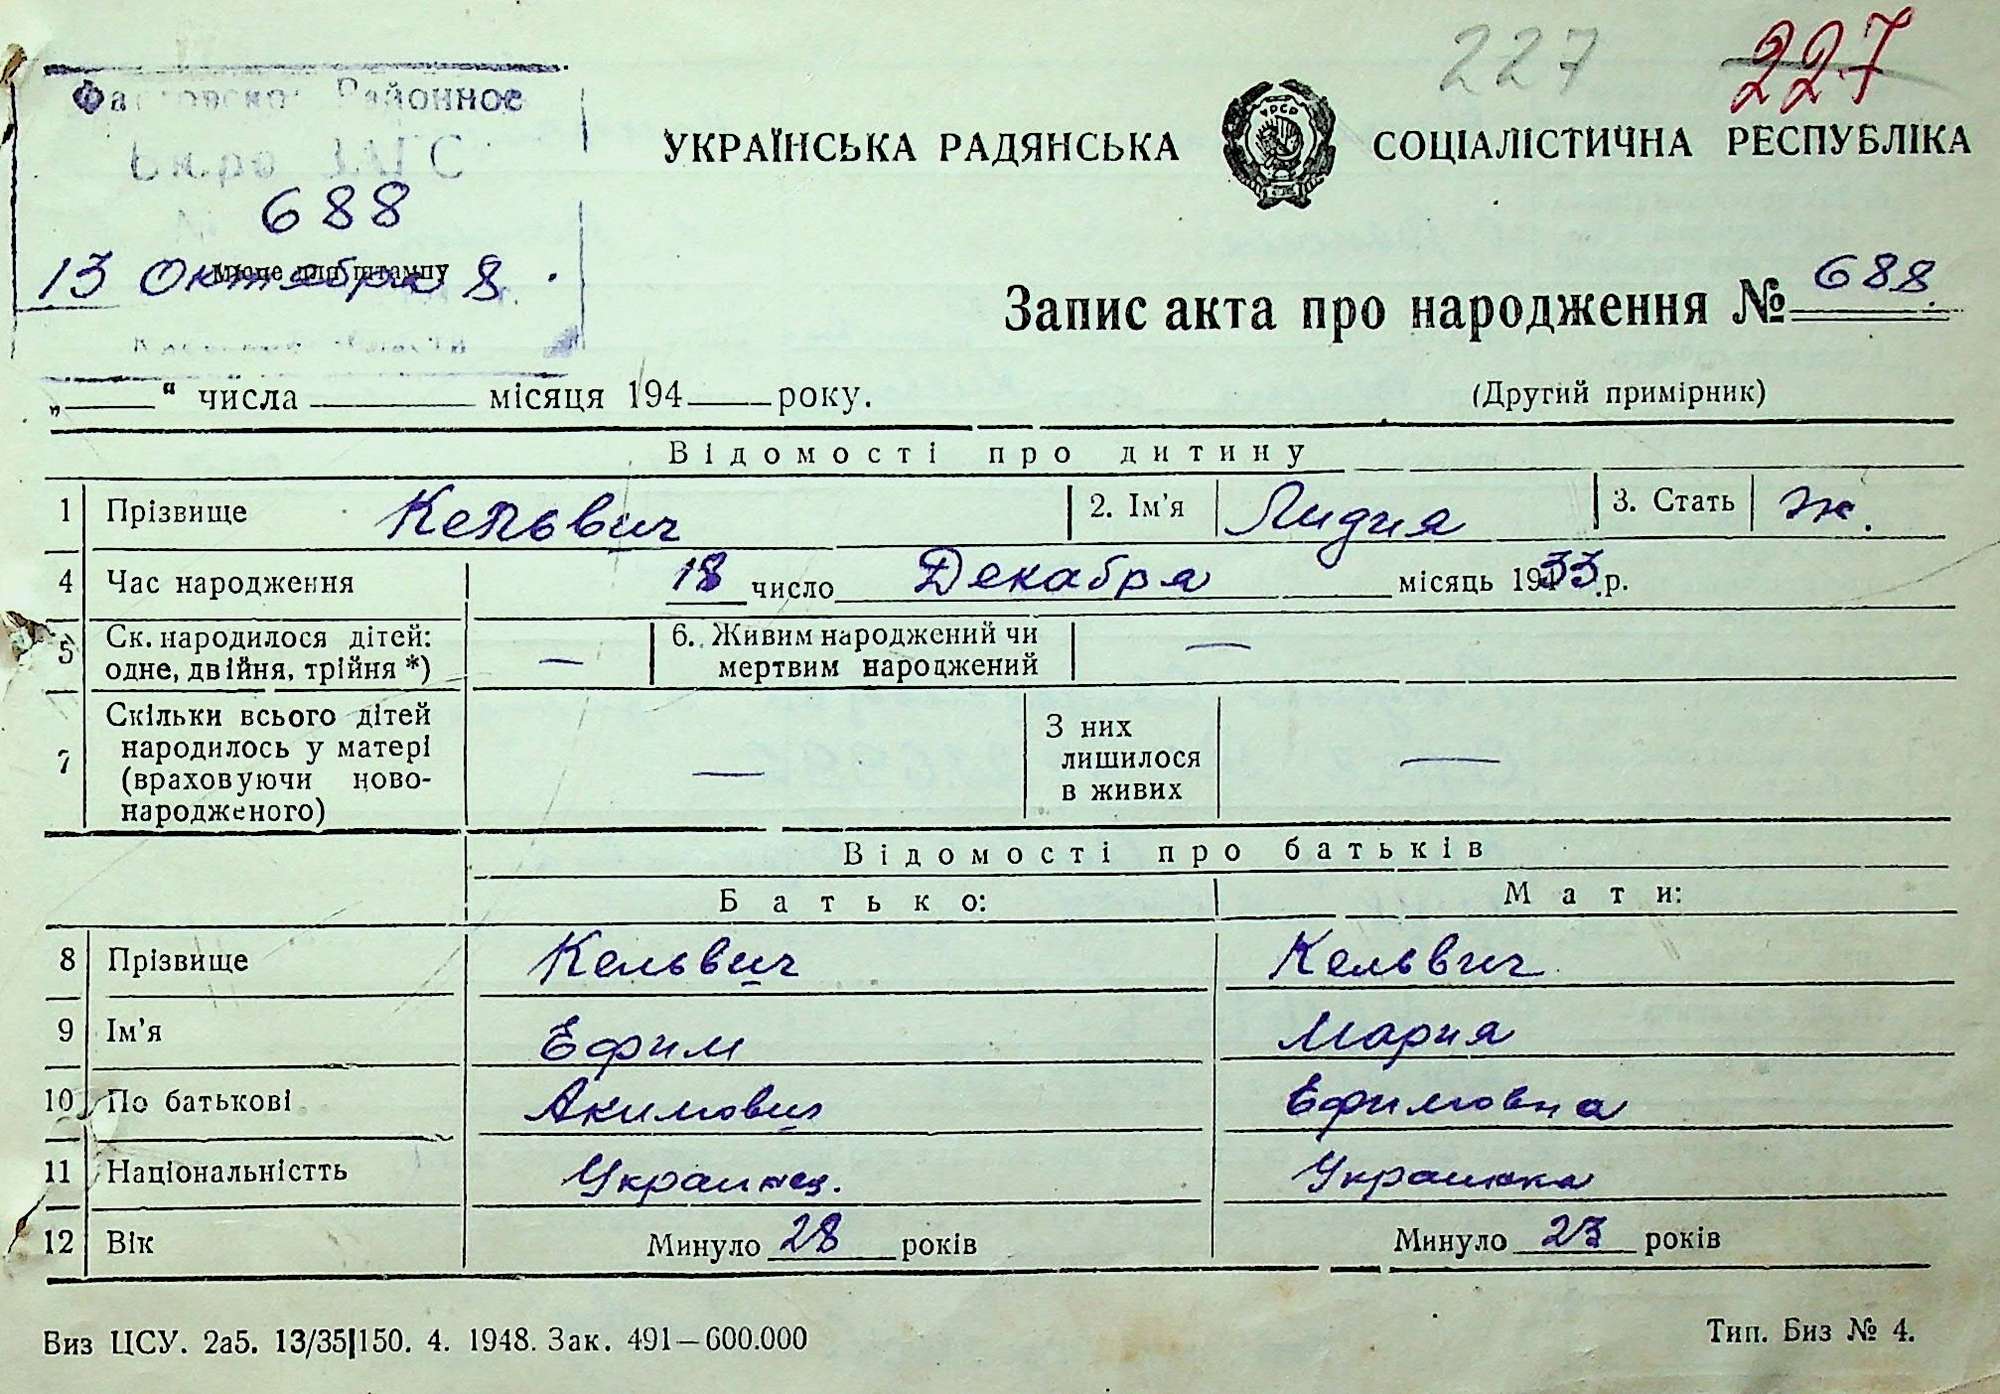 227 227
Районное
Бюро ЗАГС
688
Місце для штампу
13 Октября 8
УКРАЇНСЬКА РАДЯНСЬКА СОЦІАЛІСТИЧНА РЕСПУБЛІКА
УРСР
Запис акта про народження № 688.
„ “ числа місяця 194 року. (Другий примірник)
Відомості про дитину
1 Прізвище Кельвич 2. Ім'я Лидия 3. Стать ж.
4 Час народження 18 число Декабря місяць 1933.р.
5 Ск. народилося дітей: — 6. Живим народжений чи —
одне, двійня, трійня *) мертвим народжений
7 Скільки всього дітей — З них —
народилось у матері лишилося
(враховуючи ново- в живих
народженого)
Відомості про батьків
Батько: Мати:
8 Прізвище Кельвич Кельвич
9 Ім'я Ефим Мария
10 По батькові Акимович Ефимовна
11 Національністть Украинец. Украинка
12 Вік Минуло 28 років Минуло 23 років
Виз ЦСУ. 2а5. 13/35|150. 4. 1948. Зак. 491—600.000 Тип. Виз № 4.